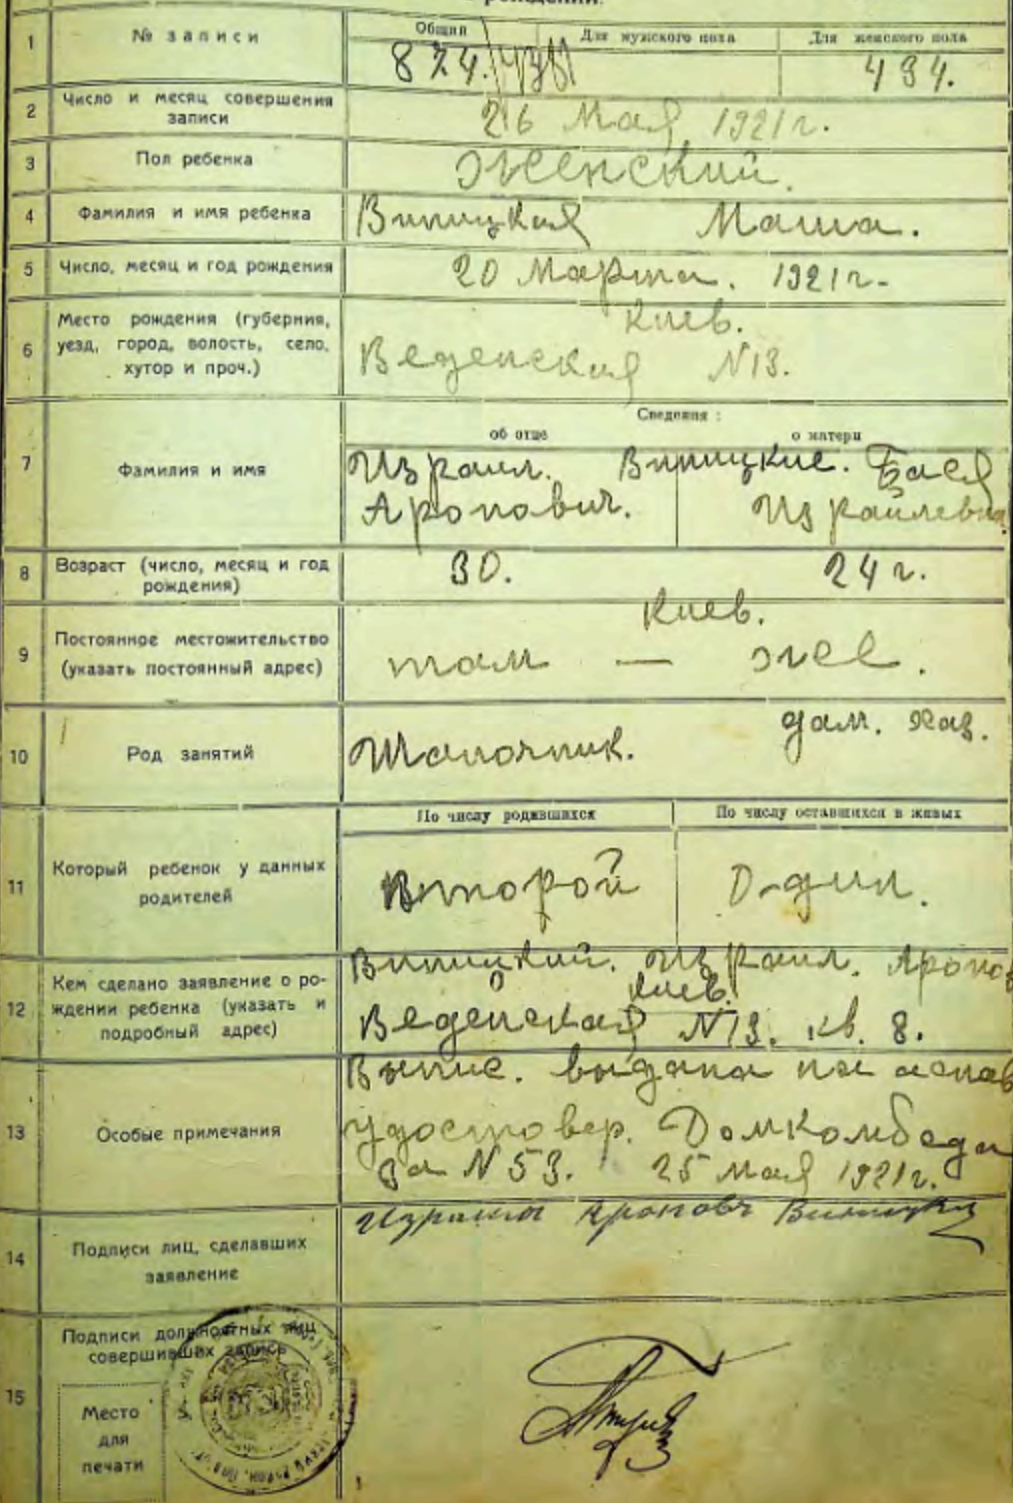 рождении.
1 № записи
Общий Для мужского пола Для женского пола
874. 434.
2 Число и месяц совершения
записи
26 Мая 1921 г.
3 Пол ребенка женский.
4 Фамилия и имя ребенка Виницкая Маша.
5 Число, месяц и год рождения 20 Марта. 1921 г.
6 Место рождения (губерния,
уезд, город, волость, село,
хутор и проч.)
Киев.
Веденская N13.
Сведения:
об отце о матери
7 Фамилия и имя
Израил. Виницкие. Бася
Аронович. Израилевна
8 Возраст (число, месяц и год
рождения)
30. 24 г.
9 Постоянное местожительство
(указать постоянный адрес)
Киев.
там — же.
10 Род занятий
Шапочник. дом. хаз.
По числу родившихся По числу оставшихся в живых
11 Который ребенок у данных
родителей
Второй Один.
12 Кем сделано заявление о ро-
ждении ребенка (указать и
подробный адрес)
Виницкий. Израил. Аронов
Киев.
Веденская N13. кв. 8.
13 Особые примечания
выдана на
удостовер. Домкомбеда
за N 53. 25 мая 1921 г.
14 Подписи лиц, сделавших
заявление
Израиль Аронов Виницки
15 Подписи должностных лиц
совершивших запись
Место
для
печати